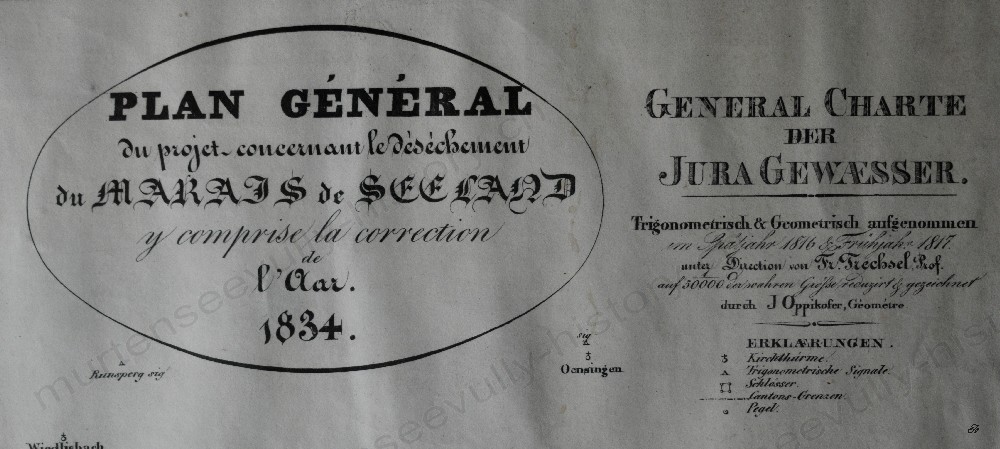 PLAN GÉNÉRAL
du projet concernant le désséchement
du MARAIS de SEELAND
y comprise la correction
de
l'Aar.
1834.
GENERAL CHARTE
DER
JURA GEWÆSSER.
Trigonometrisch & Geometrisch aufgenommen
im Spätjahr 1816 & Frühjahr 1817.
unter Direction von Fr. Trechsel, Prof.
auf 50000 der wahren Größe reduzirt & gezeichnet
durch J Oppikofer, Géomètre
ERKLÆRUNGEN.
Kirchthürme.
Trigonometrische Signale.
Schlösser.
Cantons-Grenzen.
Pegel.
Runsperg sig
sig
Oensingen
Wiedlisbach